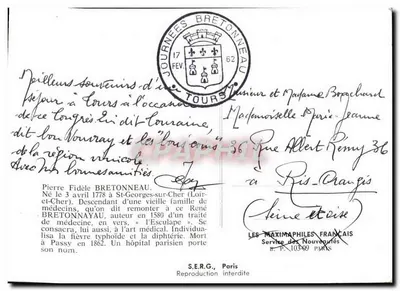 JOURNÉES BRETONNEAU
17
FEV.
62
TOURS
Meilleurs souvenirs d'un
séjour à Tours à l'occasion
de ce Congrès En dit Touraine,
dit bon Vouvray et les "bons amis"
de la région vinicole.
Avec nos bonnes amitiés.
Monsieur et Madame
Mademoiselle Marie-Jeanne
36 Rue Albert Rémy 36
à Ris-Orangis
(Seine et Oise)
Pierre Fidèle BRETONNEAU.
Né le 3 avril 1778 à St-Georges-sur-Cher (Loir-
et-Cher). Descendant d'une vieille famille de
médecins, qu'on dit remonter à ce René
BRETONNAYAU, auteur en 1580 d'un traité
de médecine, en vers, « l'Esculape ». Se
consacra, lui aussi, à l'art médical. Individua-
lisa la fièvre typhoïde et la diphtérie. Mort
à Passy en 1862. Un hôpital parisien porte
son nom.
LES MAXIMAPHILES FRANÇAIS
Service des Nouveautés
B. P. 103-09 PARIS
S.E.R.G., Paris
Reproduction interdite